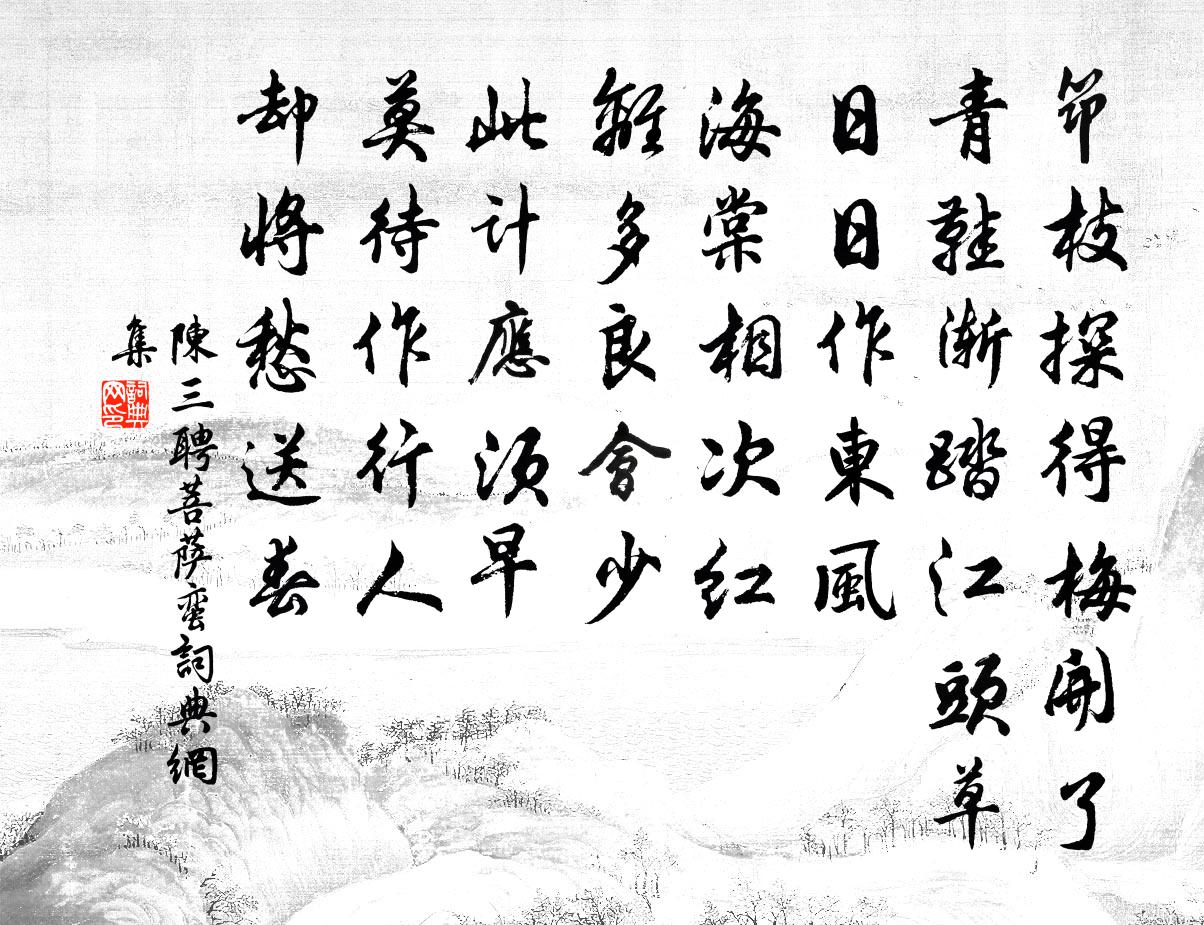 筇枝探得梅開了
青鞋漸踏江頭草
日日作東風
海棠相次紅
離多良會少
此計應須早
莫待作行人
却將愁送春
陳三聘菩薩蠻詞典網
集
詞典
网印